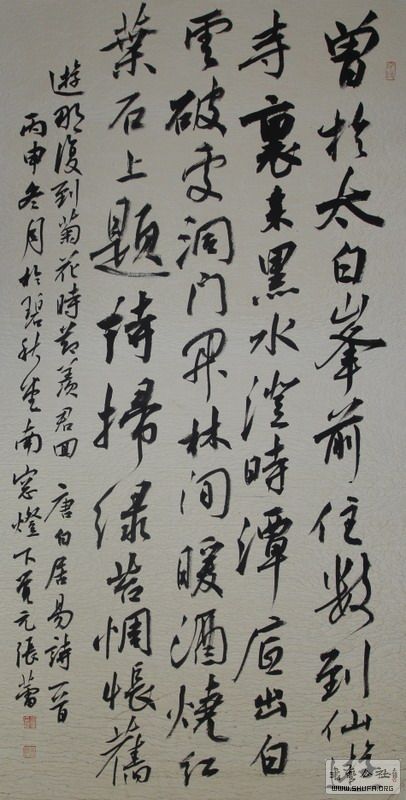 曾於太白峯前住数到仙遊
寺裏来黑水澄時潭底出白
雲破處洞门開林间暖酒燒红
葉石上題詩掃绿苔惆悵舊
遊那復到菊花時節羡君回 唐白居易詩一首
丙申冬月於碧秋堂南窓燈下
張蕾
WWW.SHUFA.ORG